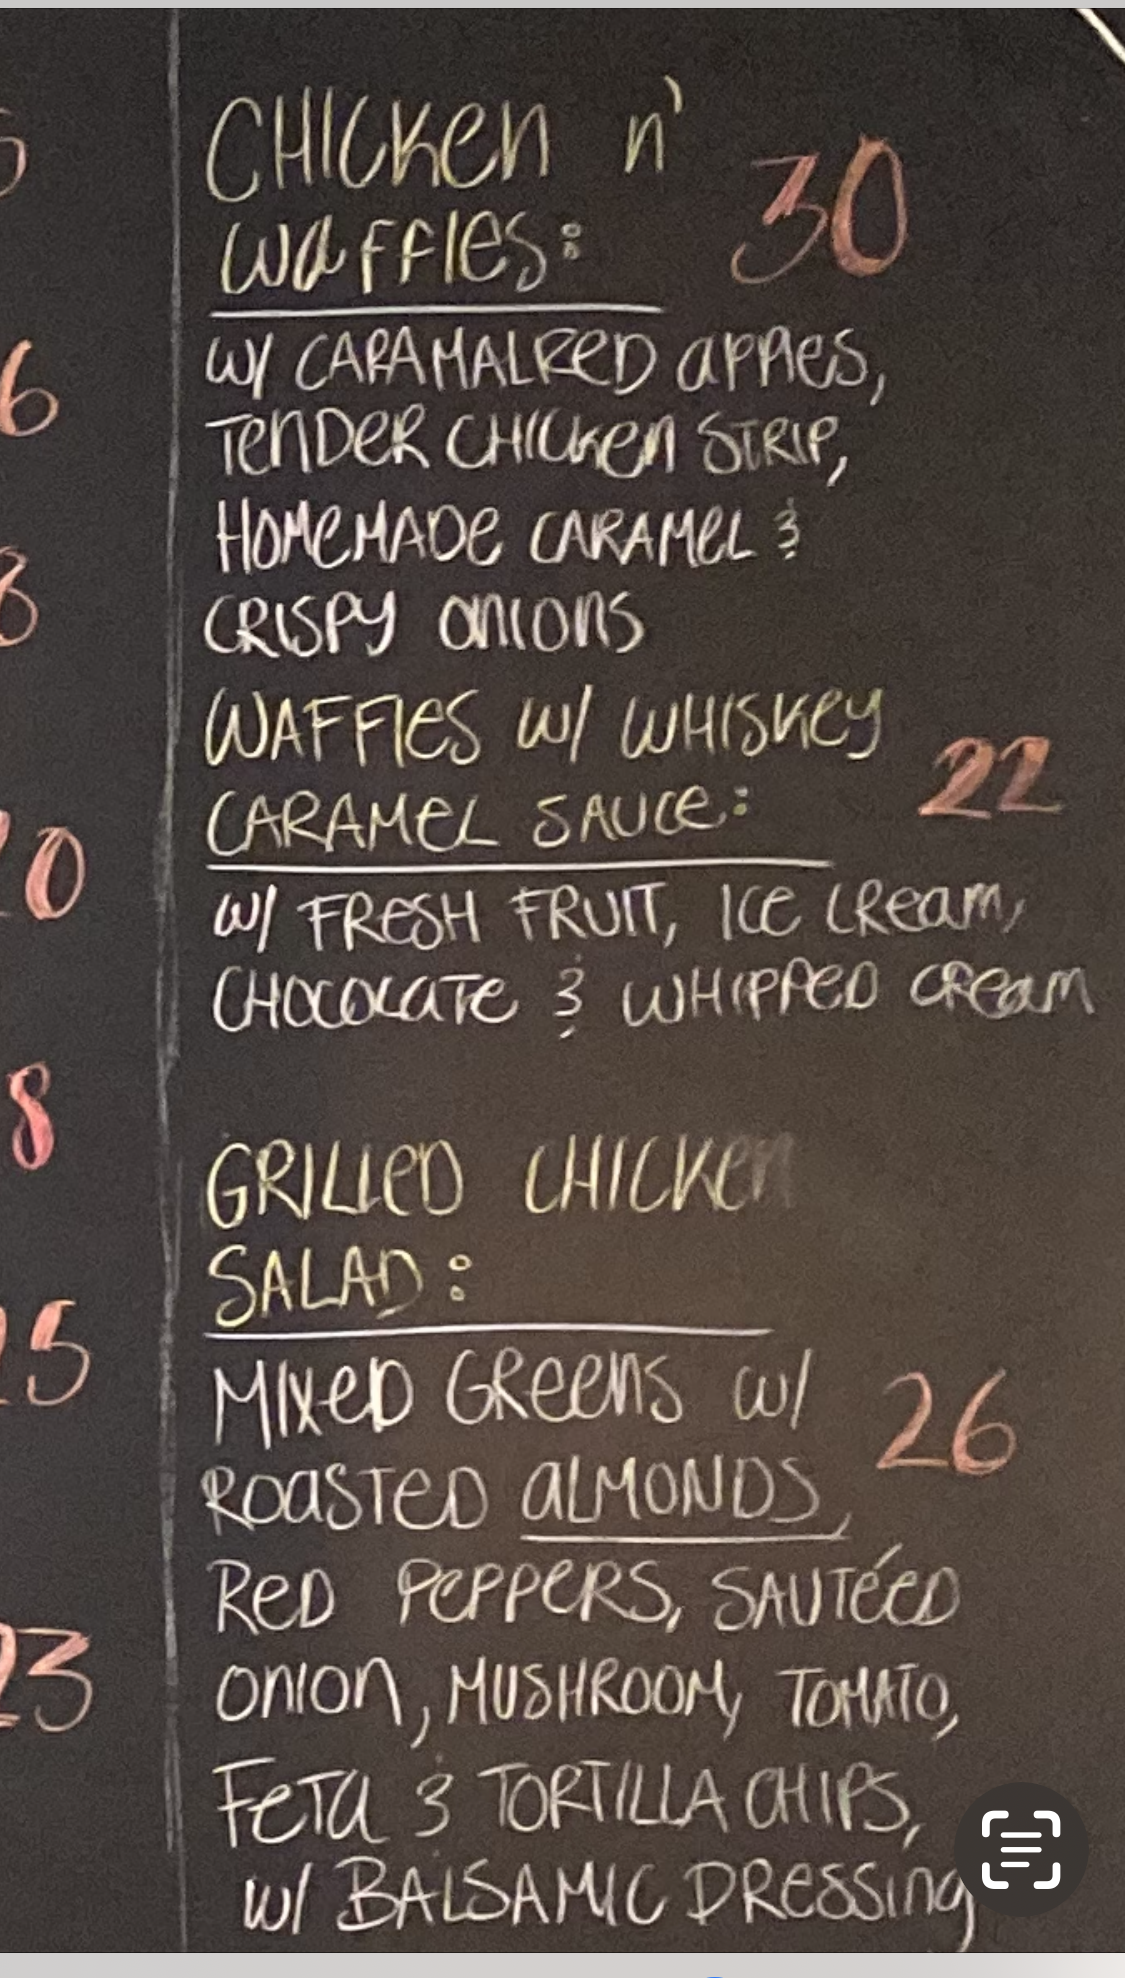 CHICKen n'
WaFFles:
30
w/ CARAMALRED apples,
TenDeR CHICken STRIP,
HOMeMADe CARAMeL &
CRISPY onions
WAFFles w/ WHISKey
CARAMeL SAUCe:
22
w/ FReSH FRUIT, ICE CReam,
CHOCOLATe & WHIPPeD CReam
GRILLeD CHICKen
SALAD:
MIxeD GReens w/
26
ROaSTeD aLMONDS,
ReD PePPeRS, SAUTéeD
onion, MUSHROOM, TOMATO,
FeTa & TORTILLA CHIPS,
w/ BALSAMIC DResSing
6
8
8
25
23